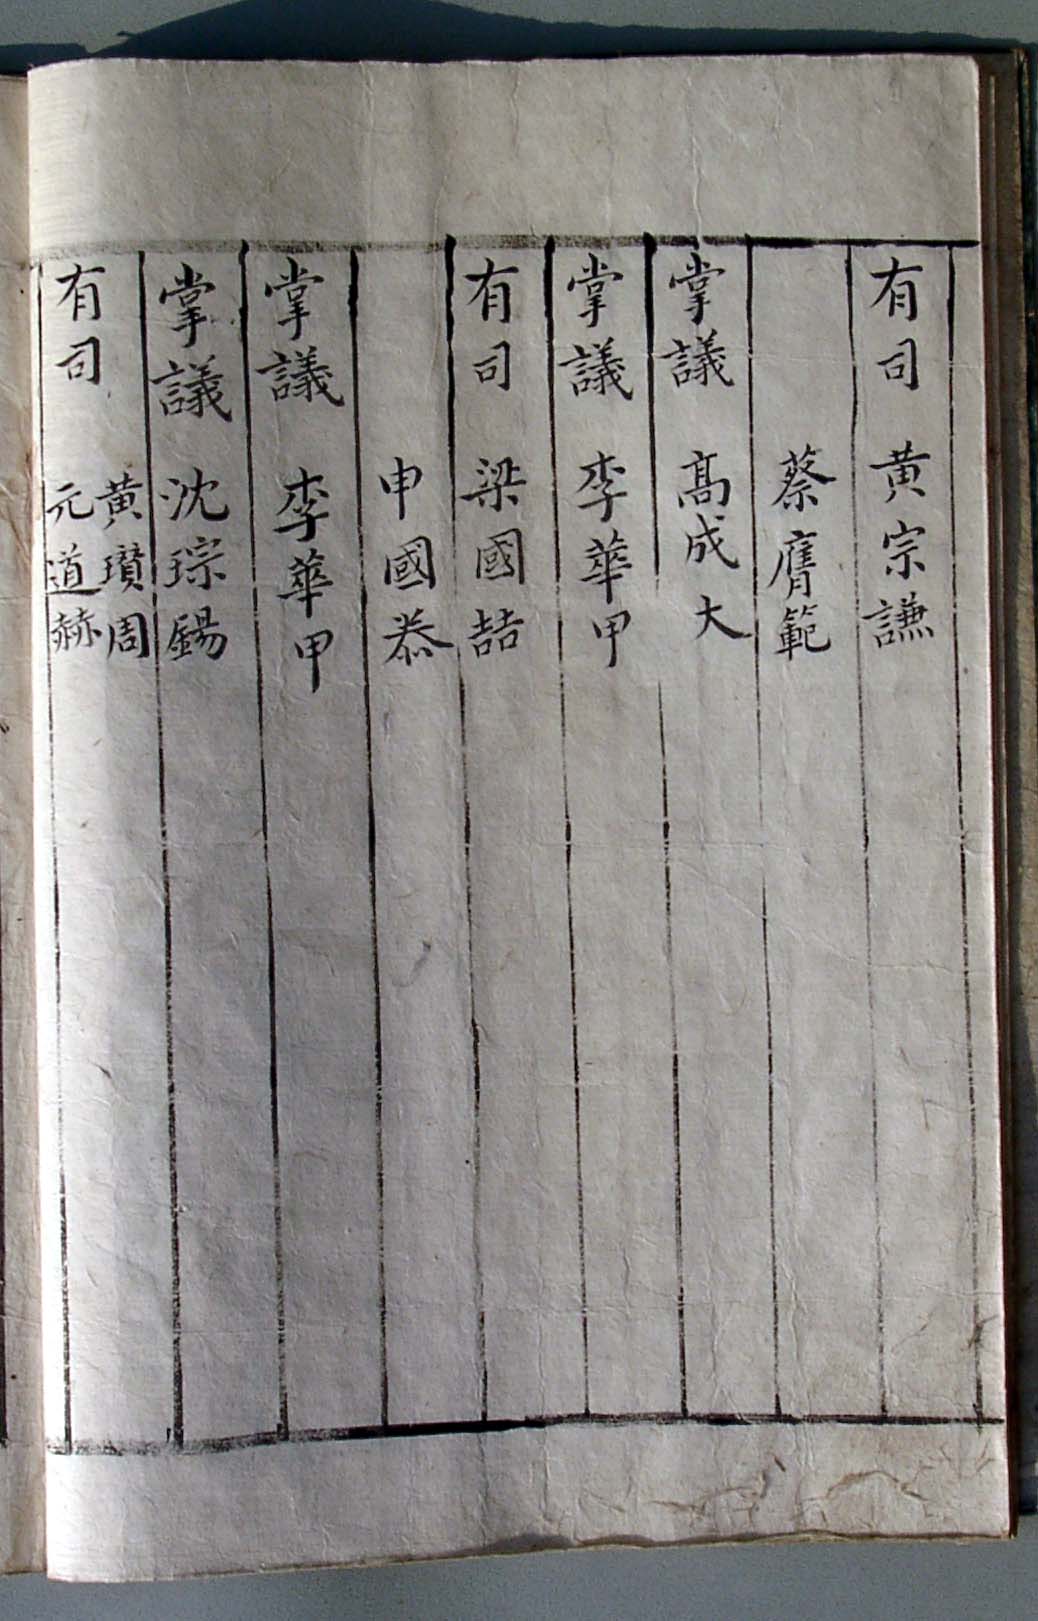 有司 黄宗謙
蔡膺範
掌議 髙成大
掌議 李華甲
有司 梁國喆
申國恭
掌議 李華甲
掌議 沈琮錫
有司 黄瓚周
元道赫